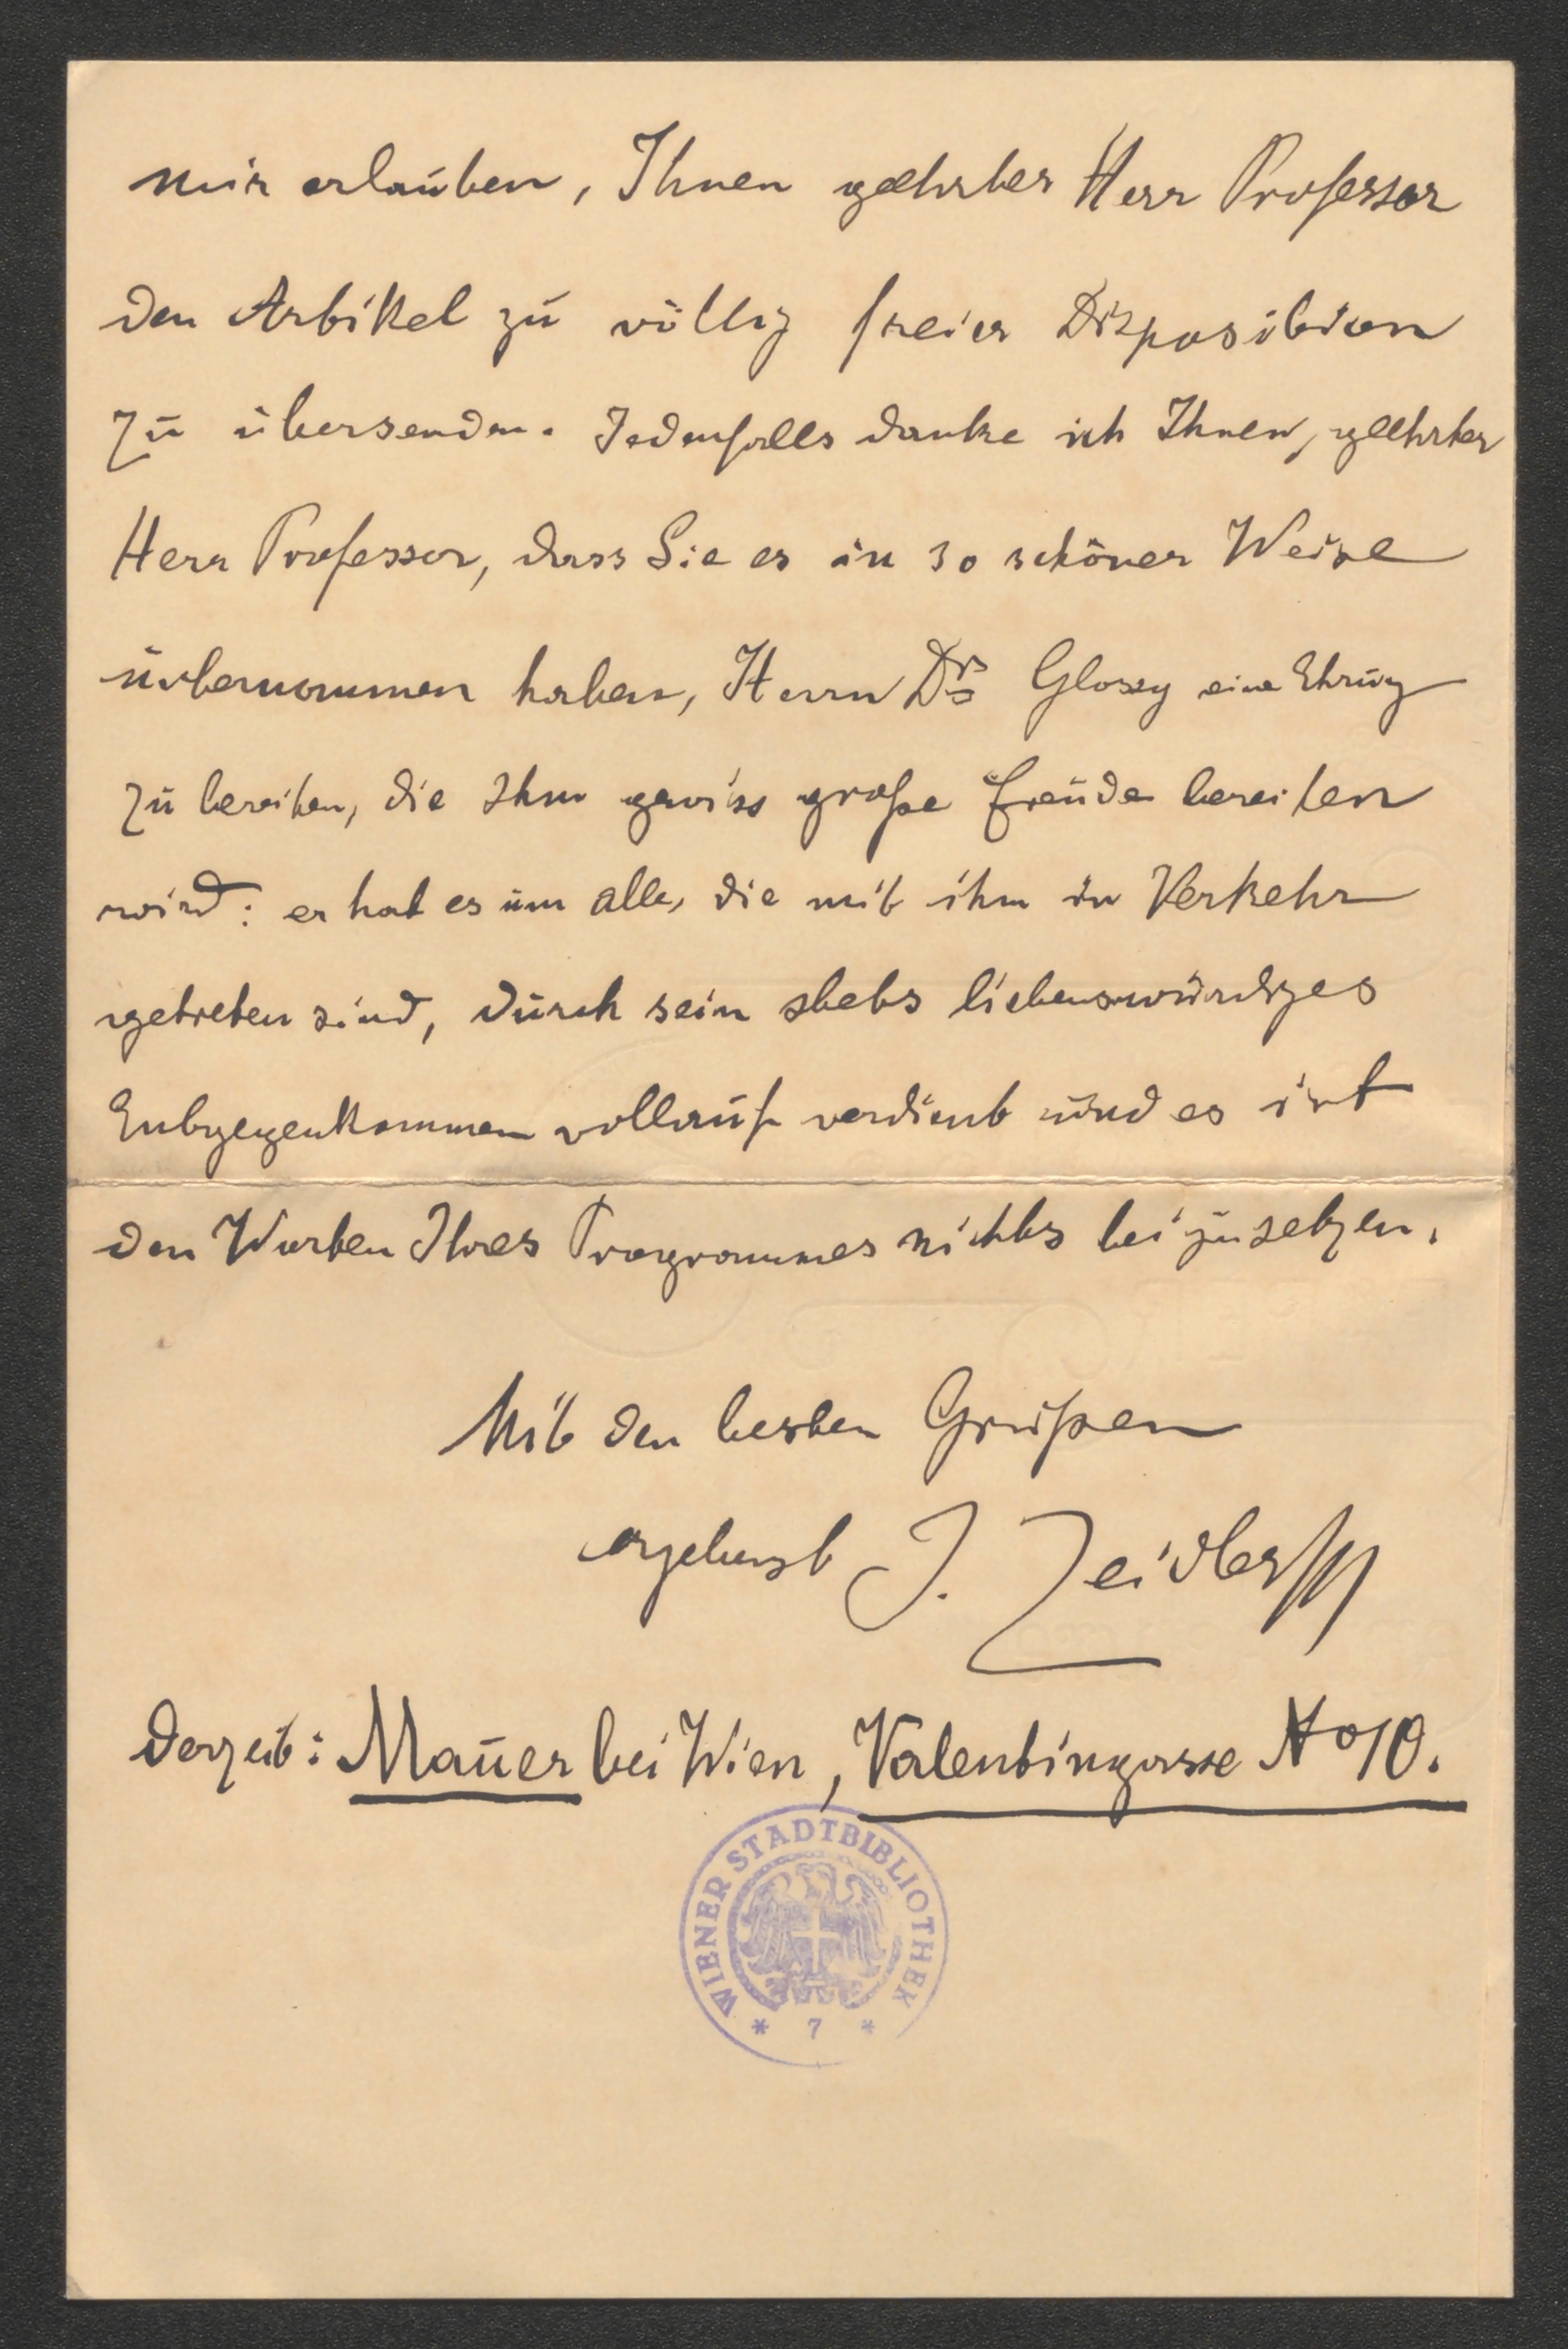 mir erlauben, Ihnen geehrter Herr Professor
den Artikel zu völlig freier Disposition
zu übersenden. Jedenfalls danke ich Ihnen, geehrter
Herr Professor, dass Sie es in so schöner Weise
übernommen haben, Herrn Dr Glossy eine Ehrung
zu bereiten, die Ihm gewiss große Freude bereiten
wird: er hat es um alle, die mit ihm in Verkehr
getreten sind, durch sein stets liebenswürdiges
Entgegenkommen vollauf verdient und es ist
den Worten Ihres Programmes nichts beizusetzen.
Mit den besten Grüßen
ergebenst J. Zeidler
derzeit: Mauer bei Wien, Valentingasse No 10.
WIENER STADTBIBLIOTHEK
* 7 *